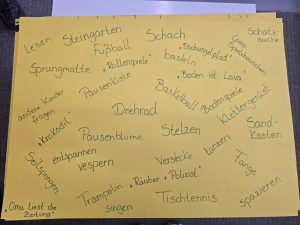 Lesen
Steingarten
Schach
Schatz-
suche
Fußball
"Dschungelpfad"
Sprungmatte
"Rollenspiele"
basteln
Pausenkiste
"Boden ist Lava"
andere Kinder
fragen
Basketball
Bodenspiele
Klettergerüst
Drehrad
"Krokodil"
Pausenblume
Stelzen
Sand-
Kasten
Seilspringen
entspannen
vespern
Verstecke
tanzen
Fange
Trampolin
"Räuber + Polizist"
spazieren
"Oma liest die
Zeitung"
singen
Tischtennis